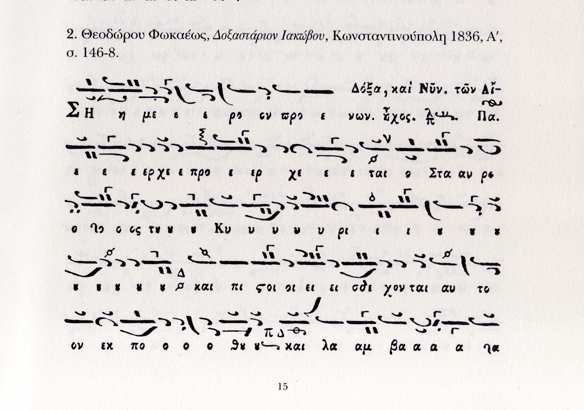 2. Θεοδώρου Φωκαέως, Δοξαστάριον Ιακώβου, Κωνσταντινούπολη 1836, Α′,
σ. 146-8.
Δόξα, καὶ Νῦν. τῶν Αἴ-
Σ Η η με ε ε ρο ον προ ε νων. ἦχος. Πα.
ε ε ε ερ χε ε προ ε ερ χε ε ε ται ο Στα αυ ρο
ο ο ο ος του ου ου Κυ υ υ υ υ ρι ι ι ου ου ου ου
ου ου ου ου ου και πι στοι οι ει ει σδε χον ται αυ το
ον εκ πο ο ο ο θου ου και λα αμ βα α α α α
15